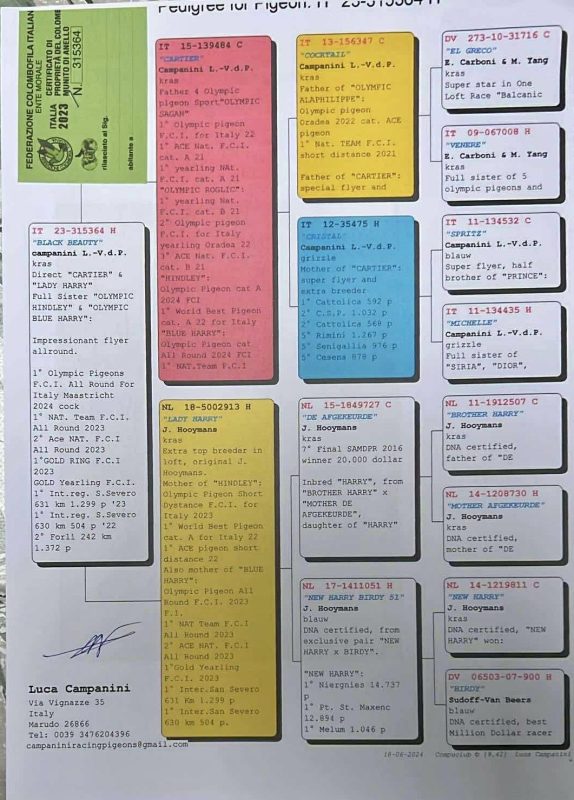 Pedigree for Pigeon: IT 23-315364 H
FEDERAZIONE COLOMBOFILA ITALIANA
ENTE MORALE
CERTIFICATO DI
PROPRIETÀ DEL COLOMBO
MUNITO DI ANELLO
ITALIA
2023
N. 315364
rilasciato al Sig.
abitante a
IT 23-315364 H
"BLACK BEAUTY"
campanini L.-V.d.P.
kras
Direct "CARTIER" &
"LADY HARRY"
Full Sister "OLYMPIC
HINDLEY" & "OLYMPIC
BLUE HARRY":
Impressionant flyer
allround.
1° Olympic Pigeons
F.C.I. All Round For
Italy Maastricht
2024 cock
1° NAT. Team F.C.I.
All Round 2023
2° Ace NAT. F.C.I
All Round 2023
1°GOLD RING F.C.I
2023
GOLD Yearling F.C.I.
1° Int.reg. S.Severo
631 km 1.299 p '23
1° Int.reg. S.Severo
630 km 504 p '22
2° Forlì 242 km
1.372 p
Luca Campanini
Via Vignazze 35
Italy
Marudo 26866
Tel: 0039 3476204396
campaniniracingpigeons@gmail.com
IT 15-139484 C
"CARTIER"
Campanini L.-V.d.P.
kras
Father 4 Olympic
pigeon Sport"OLYMPIC
SAGAN"
1° Olympic pigeon
F.C.I. for Italy 22
1° ACE Nat. F.C.I.
cat. A 21
1° yearling NAt.
F.C.I. cat. A 21
"OLYMPIC ROGLIC":
1° yearling Nat.
F.C.I. cat. B 21
2° Olympic pigeon
F.C.I. for Italy
yearling Oradea 22
3° ACE Nat. F.C.I.
cat. B 21
"HINDLEY":
Olympic Pigeon cat A
2024 FCI
1° World Best Pigeon
cat. A 22 for Italy
"BLUE HARRY":
Olympic Pigeon cat
All Round 2024 FCI
1° NAT.Team F.C.I
NL 18-5002913 H
"LADY HARRY"
J. Hooymans
kras
Extra top breeder in
loft, original J.
Hooymans.
Mother of "HINDLEY":
Olympic Pigeon Short
Dystance F.C.I. for
Italy 2023
1° World Best Pigeon
cat. A for Italy 22
1° ACE pigeon short
distance 22
Also mother of "BLUE
HARRY":
Olympic Pigeon All
Round F.C.I. 2023
F.I.
1° NAT Team F.C.I
All Round 2023
2° ACE NAT. F.C.I
All Round 2023
1°Gold Yearling
F.C.I. 2023
1° Inter.San Severo
631 Km 1.299 p
1° Inter.San Severo
630 km 504 p.
IT 13-156347 C
"COCKTAIL"
Campanini L.-V.d.P.
kras
Father of "OLYMPIC
ALAPHILIPPE":
Olympic pigeon
Oradea 2022 cat. ACE
pigeon
1° Nat. TEAM F.C.I.
short distance 2021
Father of "CARTIER":
special flyer and
IT 12-35475 H
"CRISTAL"
Campanini L.-V.d.P.
grizzle
Mother of "CARTIER":
super flyer and
extra breeder
1° Cattolica 592 p
2° C.S.P. 1.032 p
2° Cattolica 568 p
5° Rimini 1.267 p
5° Senigallia 976 p
6° Cesena 878 p
NL 15-1849727 C
"DE AFGEKEURDE"
J. Hooymans
kras
7° Final SAMDPR 2016
winner 20.000 dollar
Inbred "HARRY", from
"BROTHER HARRY" x
"MOTHER DE
AFGEKEURDE",
daughter of "HARRY"
NL 17-1411051 H
"NEW HARRY BIRDY 51"
J. Hooymans
blauw
DNA certified, from
exclusive pair "NEW
HARRY x BIRDY".
"NEW HARRY":
1° Niergnies 14.737
p
1° Pt. St. Maxenc
12.894 p
1° Melum 1.046 p
DV 273-10-31716 C
"EL GRECO"
E. Carboni & M. Yang
kras
Super star in One
Loft Race "Balcanic
IT 09-067008 H
"VENERE"
E. Carboni & M. Yang
kras
Full sister of 5
olympic pigeons and
IT 11-134532 C
"SPRITZ"
Campanini L.-V.d.P.
blauw
Super flyer, half
brother of "PRINCE":
IT 11-134435 H
"MICHELLE"
Campanini L.-V.d.P.
grizzle
Full sister of
"SIRIA", "DIOR",
NL 11-1912507 C
"BROTHER HARRY"
J. Hooymans
kras
DNA certified,
father of "DE
NL 14-1208730 H
"MOTHER AFGEKEURDE"
J. Hooymans
kras
DNA certified,
mother of "DE
NL 14-1219811 C
"NEW HARRY"
J. Hooymans
kras
DNA certified, "NEW
HARRY" won:
DV 06503-07-900 H
"BIRDY"
Sudoff-Van Beers
blauw
DNA certified, best
Million Dollar racer
18-06-2024 Compuclub © [9.42] Luca Campanini